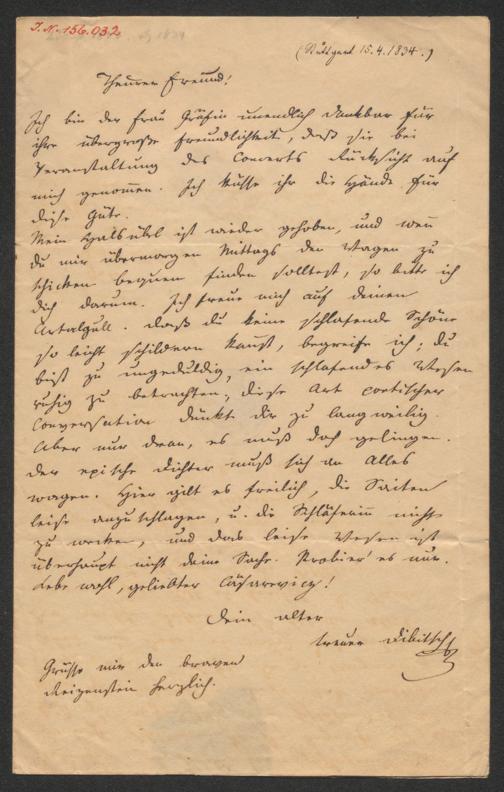 I.N. 156.032
(Stuttgart 15.4.1834.)
Theurer Freund!
Ich bin der Frau Gräfin unendlich dankbar für
ihre übergroße Freundlichkeit, daß sie bei
Veranstaltung des Concerts Rücksicht auf
mich genommen. Ich küsse ihr die Hände für
diese Güte.
Mein Halsübel ist wieder gehoben, und wenn
du mir übermorgen Mittags den Wagen zu
schicken bequem finden solltest, so bitte ich
dich darum. Ich freue mich auf deinen
. Daß du keine schlafende Schöne
so leicht schildern kannst, begreife ich; du
bist zu ungeduldig, ein schlafendes Wesen
ruhig zu betrachten; diese Art poetischer
Conversation dünkt dir zu langweilig.
Aber nur dran, es muß doch gelingen.
Der epische Dichter muß sich an Alles
wagen. Hier gilt es freilich, die Saiten
leise anzuschlagen, u. die Schläferinn nicht
zu wecken, und das leise Wesen ist
überhaupt nicht deine Sache. Probier' es nur.
Lebe wohl, geliebter Cäsarewicz!
Dein alter
treuer Diebitsch
Grüsse mir den braven
Reizenstein herzlich.